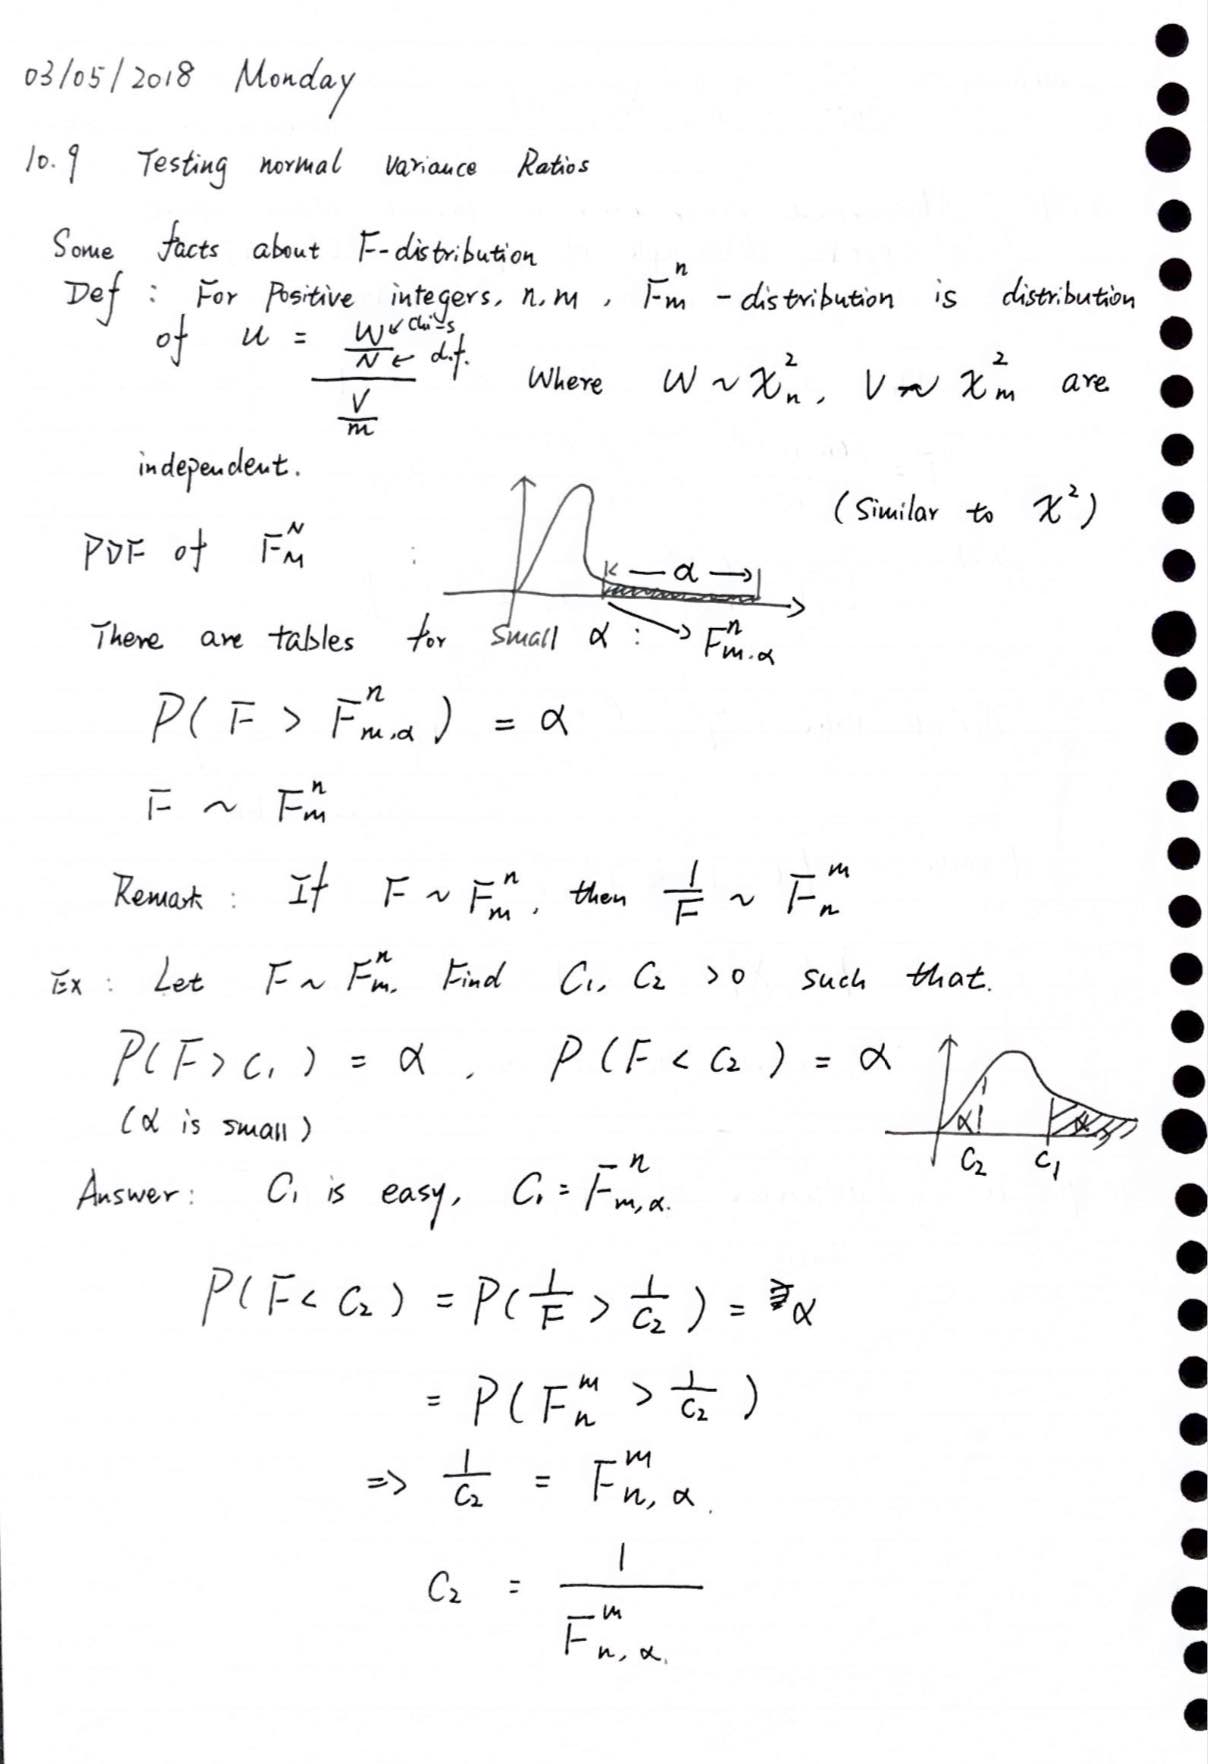 03/05/2018 Monday
10.9 Testing normal variance Ratios
Some facts about F-distribution
Def : For Positive integers, n, m, F_m^n - distribution is distribution
of u = (W/N)/(V/m) ← d.f. Where W ~ χ_n^2, V ~ χ_m^2 are
independent.
(Similar to χ^2)
PDF of F_M^N :
α
There are tables for small α : → F_{m.α}^n
P( F > F_{m,α}^n ) = α
F ~ F_m^n
Remark : If F ~ F_m^n, then 1/F ~ F_n^m
Ex : Let F ~ F_m^n. Find C1, C2 >0 such that.
P(F > C1) = α , P (F < C2) = α
(α is small)
α α
C2 C1
Answer: C1 is easy, C1 = F_{m,α}^n.
P(F < C2) = P(1/F > 1/C2) = α
= P(F_n^m > 1/C2)
=> 1/C2 = F_{n,α}^m.
C2 = 1/F_{n,α}^m.